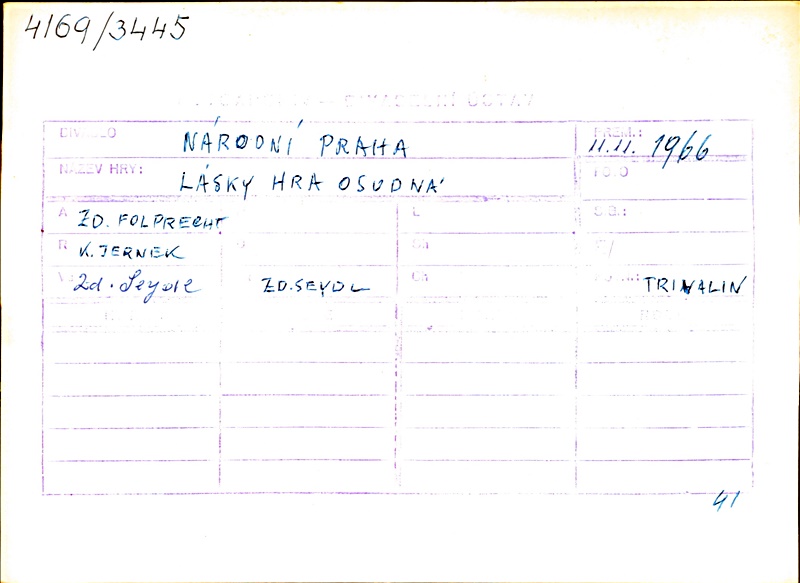 4169/3445
DIVADLO NÁRODNÍ PRAHA PREM.: 11.11. 1966
NÁZEV HRY: LÁSKY HRA OSUDNÁ FOTO
A ZD. FOLPRECHT L SG.:
R K. JERNEK Sh
Zd. Seydl ZD. SEYDL Ch TRIVALIN
41